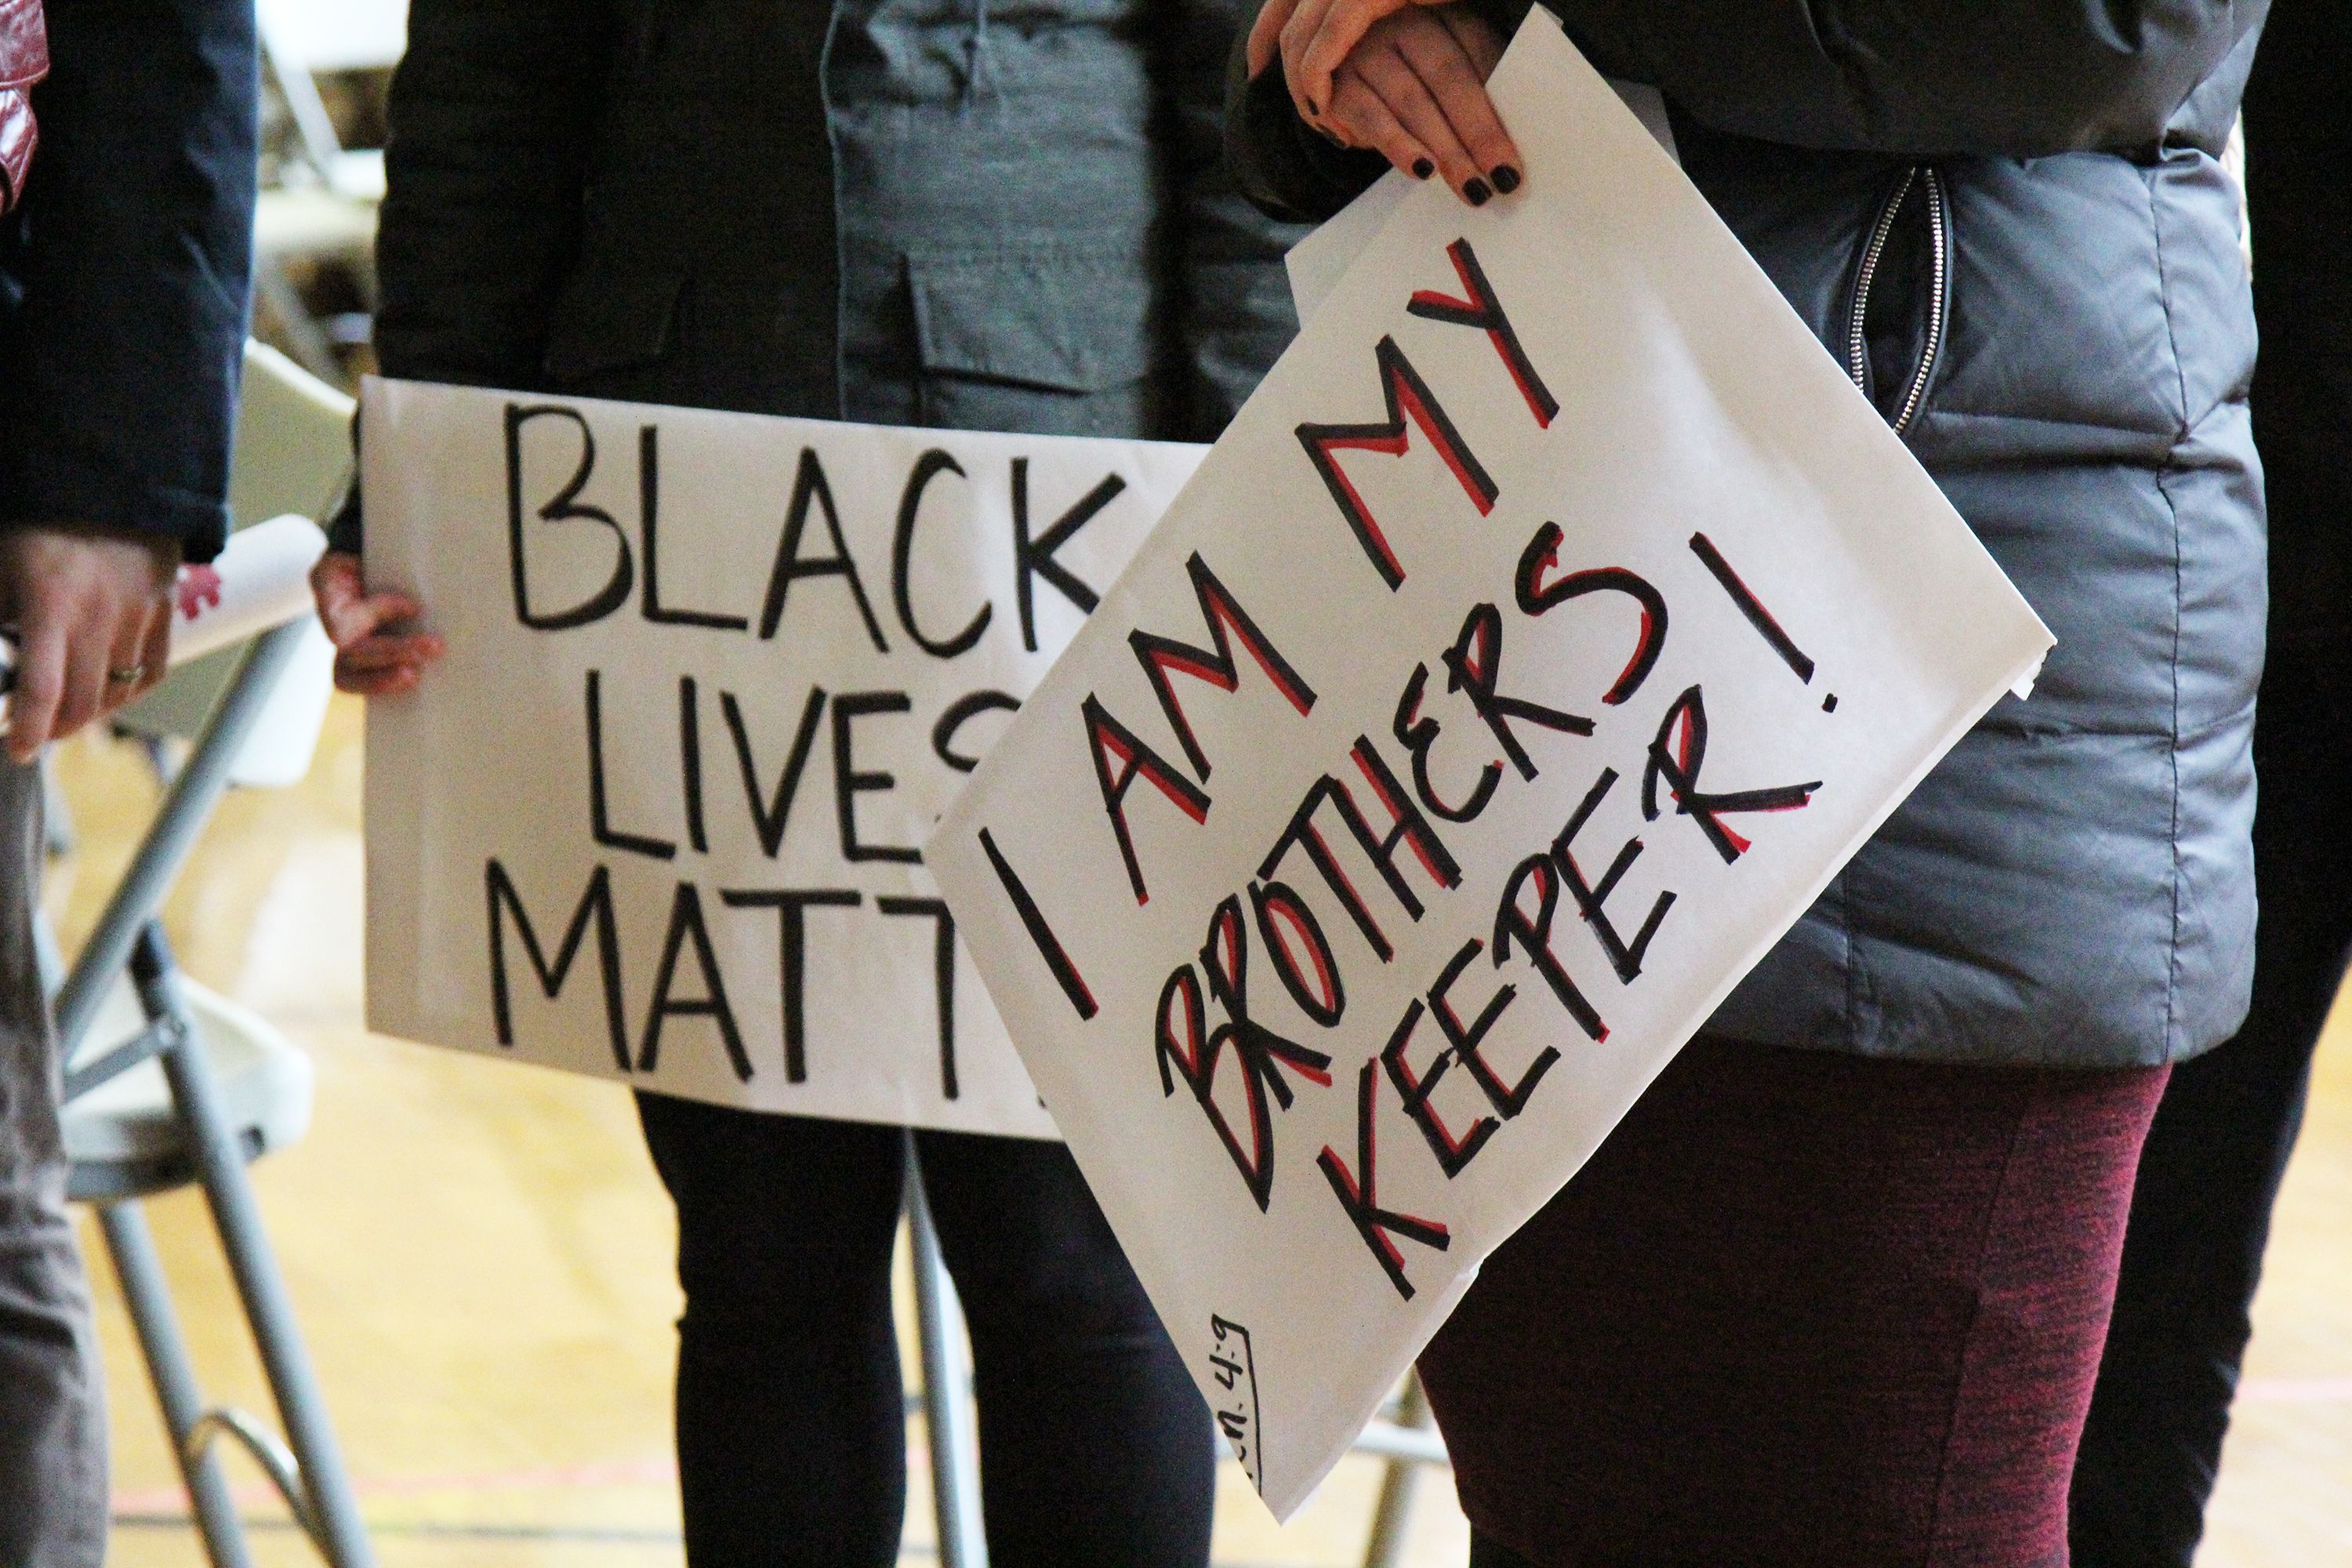 BLACK
LIVES
MATT
I AM MY
BROTHERS
KEEPER!
en. 4:9